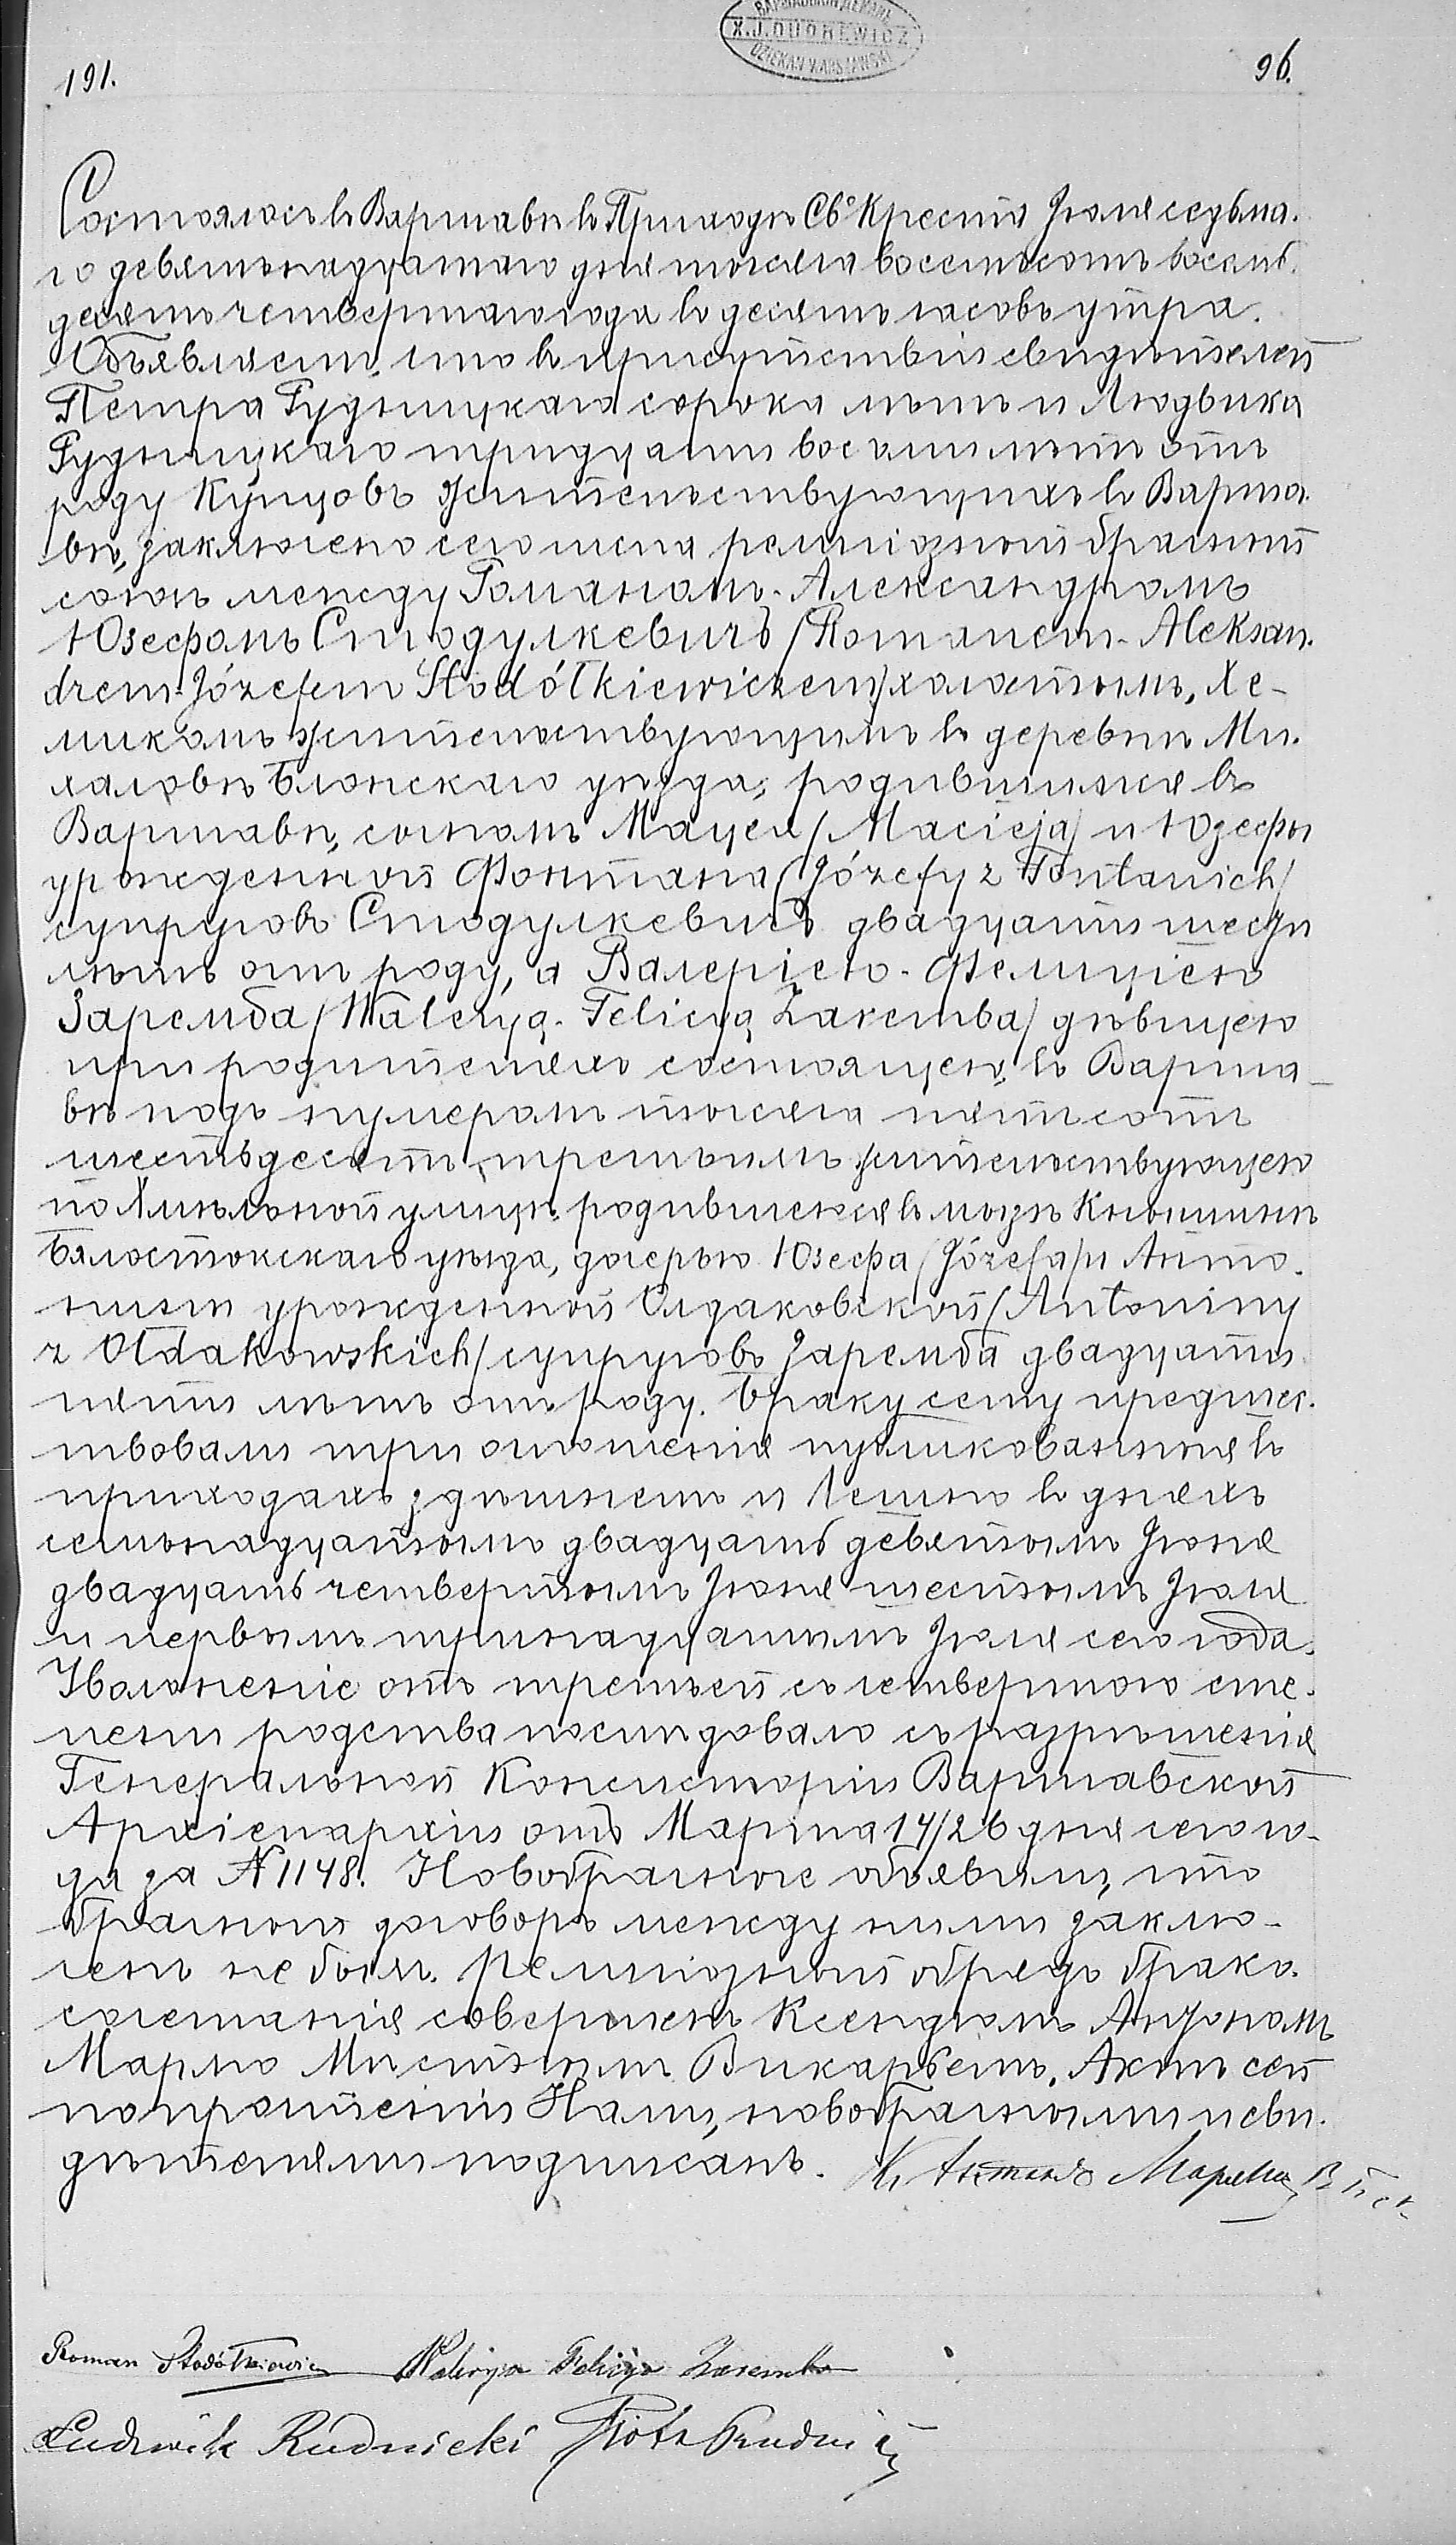 ВАРШАВСКІЙ ДЕКАНЪ
X.J.DUDREWICZ
DZIEKAN WARSZAWSKI
191.
96.
Состоялось въ Варшавѣ въ Приходѣ Св⁰ Креста Іюля седьма-
го девятьнадцатаго дня тысяча восемьсотъ восемь-
десятъ четвертаго года въ десять часовъ утра.
Объявляемъ, что въ присутствіи свидѣтелей
Петра Рудницкаго сорока лѣтъ и Людвика
Рудницкаго тридцати восьми лѣтъ отъ
роду Купцовъ жительствующихъ въ Варша-
вѣ, заключено сего числа религіозный брачный
союзъ между Романомъ-Александромъ
Юзефомъ Стодулкевичъ /Romanem-Aleksan-
drem-Józefem Stodółkiewiczem/ холостымъ, Хе-
микомъ жительствующимъ въ деревнѣ Ми-
халовѣ Блонскаго уѣзда, родившимся въ
Варшавѣ, сыномъ Мацея /Macieja/ и Юзефы
урожденной Фонтана /Józefy z Fontanich/
супруговъ Стодулкевичъ двадцати шести
лѣтъ отъ роду, а Валеріею-Фелиціею
Заремба /Waleryą-Felicyą Zaremba/ дѣвицею
при родителяхъ состоящею, въ Варша-
вѣ подъ нумеромъ тысяча пятьсотъ
шестьдесятъ третьимъ жительствующею
по Хмѣльной улицѣ, родившеюся въ мѣстѣ Кнышинѣ
Бялостокскаго уѣзда, дочерью Юзефа /Józefa/ и Анто-
нины урожденной Олдаковской /Antoniny
z Ołdakowskich/ супруговъ Заремба двадцати
пяти лѣтъ отъ роду. Браку сему предшес-
твовали три оглошенія публикованныя въ
приходахъ здѣшнемъ и Лешно въ дняхъ
семьнадцатомъ двадцать девятомъ Іюня
двадцать четвертомъ Іюня шестомъ Іюля
и первымъ тринадцатымъ Іюля сего года.
Увольненіе отъ третьей съ четвертою сте-
пени родства послѣдовало съ разрѣшенія
Генеральной Консисторіи Варшавской
Архіепархіи отъ Марта 14/26 дня сего го-
да за N 1148. Новобрачные объявили, что
брачный договоръ между ними заклю-
ченъ не былъ. Религіозный обрядъ брако-
сочетанія совершенъ Ксендзомъ Антономъ
Мѣстнымъ Викаріемъ. Актъ сей
по прочтеніи Нами, новобрачными и сви-
дѣтелями подписанъ. К. Антонъ
Roman Stodółkiewicz Walerya Felicya Zaremba
Ludwik Rudnicki Piotr Rudnicki